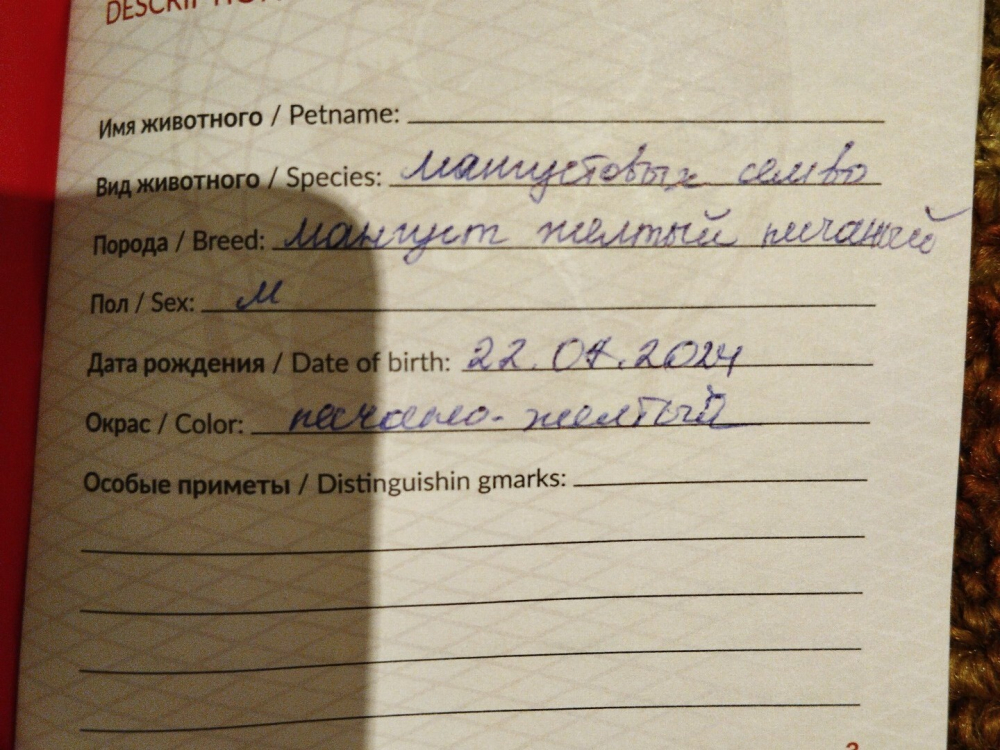 DESCRIPTION
Имя животного / Petname:
Вид животного / Species: мангустовых семво
Порода / Breed: Мангуст желтый песчаный
Пол / Sex: М
Дата рождения / Date of birth: 22.07.2024
Окрас / Color: песчано-желтый
Особые приметы / Distinguishin gmarks: